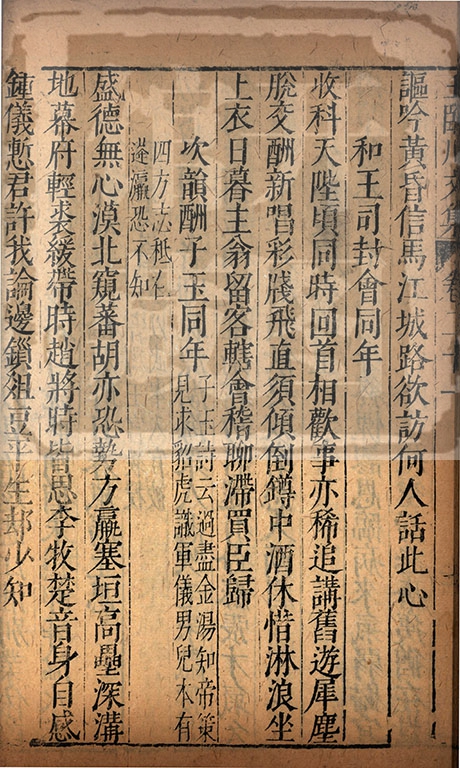 謳吟黃昏信馬江城路欲訪何人話此心
和王司封會同年
收科天陛頃同時回首相歡事亦稀追講舊遊犀麈
脫交酬新唱彩牋飛直須傾倒鐏中酒休惜淋浪坐
上衣日暮主翁留客轄會稽聊滯買臣歸
次韻酬子玉同年
子玉詩云過盡金湯知帝策
見求貂虎識軍儀男兒本有
四方志秪在
蓬瀛恐不知
盛德無心漠北窺蕃胡亦恐勢方羸塞垣高壘深溝
地幕府輕裘緩帶時趙將時皆思李牧楚音身自感
鍾儀慙君許我論邊鎖俎豆平生却少知